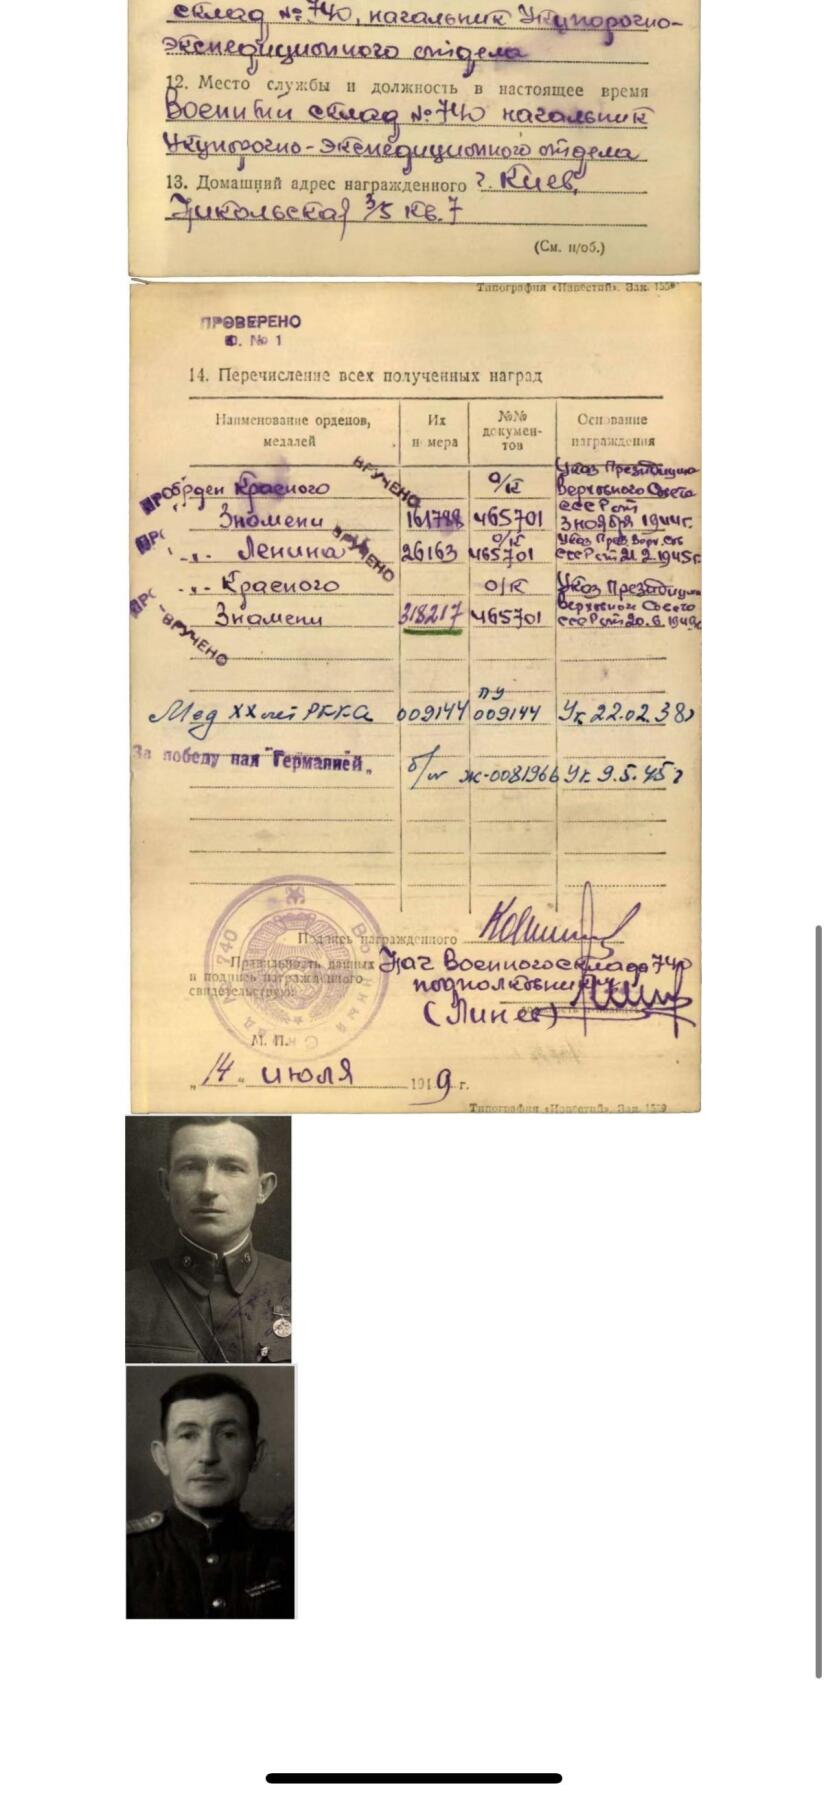 склад № 740, начальник Укупорочно-
экспедиционного отдела
12. Место службы и должность в настоящее время
Военный склад № 740 начальник
Укупорочно-экспедиционного отдела
13. Домашний адрес награжденного г. Киев,
Никольская 3/5 кв. 7
(См. н/об.)
Типография «Известий». Зак. 1559
ПРОВЕРЕНО
О. № 1
14. Перечисление всех полученных наград
Наименование орденов, медалей
Их номера
№№ документов
Основание награждения
Орден Красного Знамени 161788 о/к 465701 Указ Президиума Верховного Совета СССР от 3 ноября 1944г.
ВРУЧЕНО
-"- Ленина 26163 о/к 465701 Указ През. Верх. Сов СССР от 21.2.1945г.
ВРУЧЕНО
-"- Красного Знамени 318217 о/к 465701 Указ Президиума Верховного Совета СССР от 20.6.1949г
ВРУЧЕНО
Мед XX лет РККА 009144 пу 009144 Ук 22.02.38г
За победу над "Германией" б/н ж-0081966 Ук 9.5.45г
Подпись награжденного
Правильность данных
и подпись награжденного
свидетельствую:
Нач Военного склада 740
подполковник
(Линев)
Военный Склад № 740
М. П.
„14" июля 1949 г.
Типография «Известий». Зак. 1559